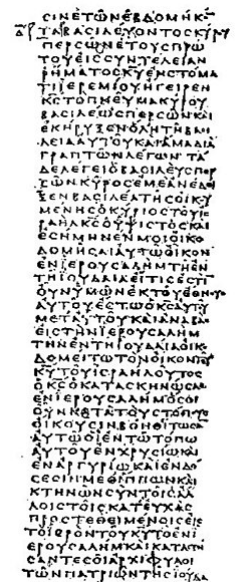 CΙΝΕΤΩΝΕΒΔΟΜΗΚΟ̅
ΤΑΒΑCΙΛΕΥΟΝΤΟCΚΥΡΟΥ
ΠΕΡCΩΝΕΤΟΥCΠΡΩ
ΤΟΥΕΙCCΥΝΤΕΛΕΙΑΝ
ΡΗΜΑΤΟCΚ̅Υ̅ΕΝCΤΟΜΑ
ΤΙΙΕΡΕΜΙΟΥΗΓΕΙΡΕΝ
Κ̅C̅ΤΟΠΝΕΥΜΑΚΥΡΟΥ
ΒΑCΙΛΕΩCΠΕΡCΩΝΚΑΙ
ΕΚΗΡΥΞΕΝΟΛΗΤΗΒΑCΙ
ΛΕΙΑΑΥΤΟΥΚΑΙΑΜΑΔΙΑ
ΓΡΑΠΤΩΝΛΕΓΩΝΤΑ
ΔΕΛΕΓΕΙΟΒΑCΙΛΕΥCΠΕΡ
CΩΝΚΥΡΟCΕΜΕΑΝΕΔΕΙ
ΞΕΝΒΑCΙΛΕΑΤΗCΟΙΚΟΥ
ΜΕΝΗCΟΚΥΡΙΟCΤΟΥΙC
ΡΑΗΛΚ̅C̅ΟΥΨΙCΤΟCΚΑΙ
ΕCΗΜΗΝΕΝΜΟΙΟΙΚΟ
ΔΟΜΗCΑΙΑΥΤΩΟΙΚΟΝ
ΕΝΙΕΡΟΥCΑΛΗΜΤΗΕΝ
ΤΗΙΟΥΔΑΙΑΕΙΤΙCΕCΤΙ
ΟΥΝΥΜΩΝΕΚΤΟΥΕΘΝΟΥC
ΑΥΤΟΥΕCΤΩΟΚ̅C̅ΑΥΤΟΥ
ΜΕΤΑΥΤΟΥΚΑΙΑΝΑΒΑC
ΕΙCΤΗΝΙΕΡΟΥCΑΛΗΜ
ΤΗΝΕΝΤΗΙΟΥΔΑΙΑΟΙΚΟ
ΔΟΜΕΙΤΩΤΟΝΟΙΚΟΝΤΟΥ
Κ̅Υ̅ΤΟΥΙCΡΑΗΛΟΥΤΟC
ΟΚ̅C̅ΟΚΑΤΑCΚΗΝΩCΑC
ΕΝΙΕΡΟΥCΑΛΗΜΟCΟΙ
ΟΥΝΚΑΤΑΤΟΥCΤΟΠΟΥC
ΟΙΚΟΥCΙΝΒΟΗΘΙΤΩCΑ̅
ΑΥΤΩΟΙΕΝΤΩΤΟΠΩ
ΑΥΤΟΥΕΝΧΡΥCΙΩΚΑΙ
ΕΝΑΡΓΥΡΙΩΚΑΙΕΝΔΟ
CΕCΙΝΜΕΘΙΠΠΩΝΚΑΙ
ΚΤΗΝΩΝCΥΝΤΟΙCΑΛ
ΛΟΙCΤΟΙCΚΑΤΕΥΧΑC
ΠΡΟCΤΕΘΕΙΜΕΝΟΙCΕΙC
ΤΟΙΕΡΟΝΤΟΥΚ̅Υ̅ΤΟΕΝΙ
ΕΡΟΥCΑΛΗΜΚΑΙΚΑΤΑCΤΗ
CΑΝΤΕCΟΙΑΡΧΙΦΥΛΟΙ
ΤΩΝΠΑΤΡΙΩΝΤΗCΙΟΥΔΑ